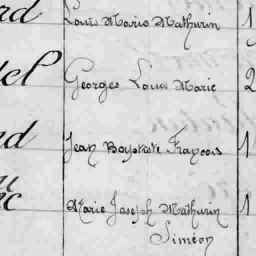 rd Louis Mario Mathurin 1
del Georges Louis Marie 2
nd Jean Baptiste François 1
Marie Joseph Mathurin 1
Siméon